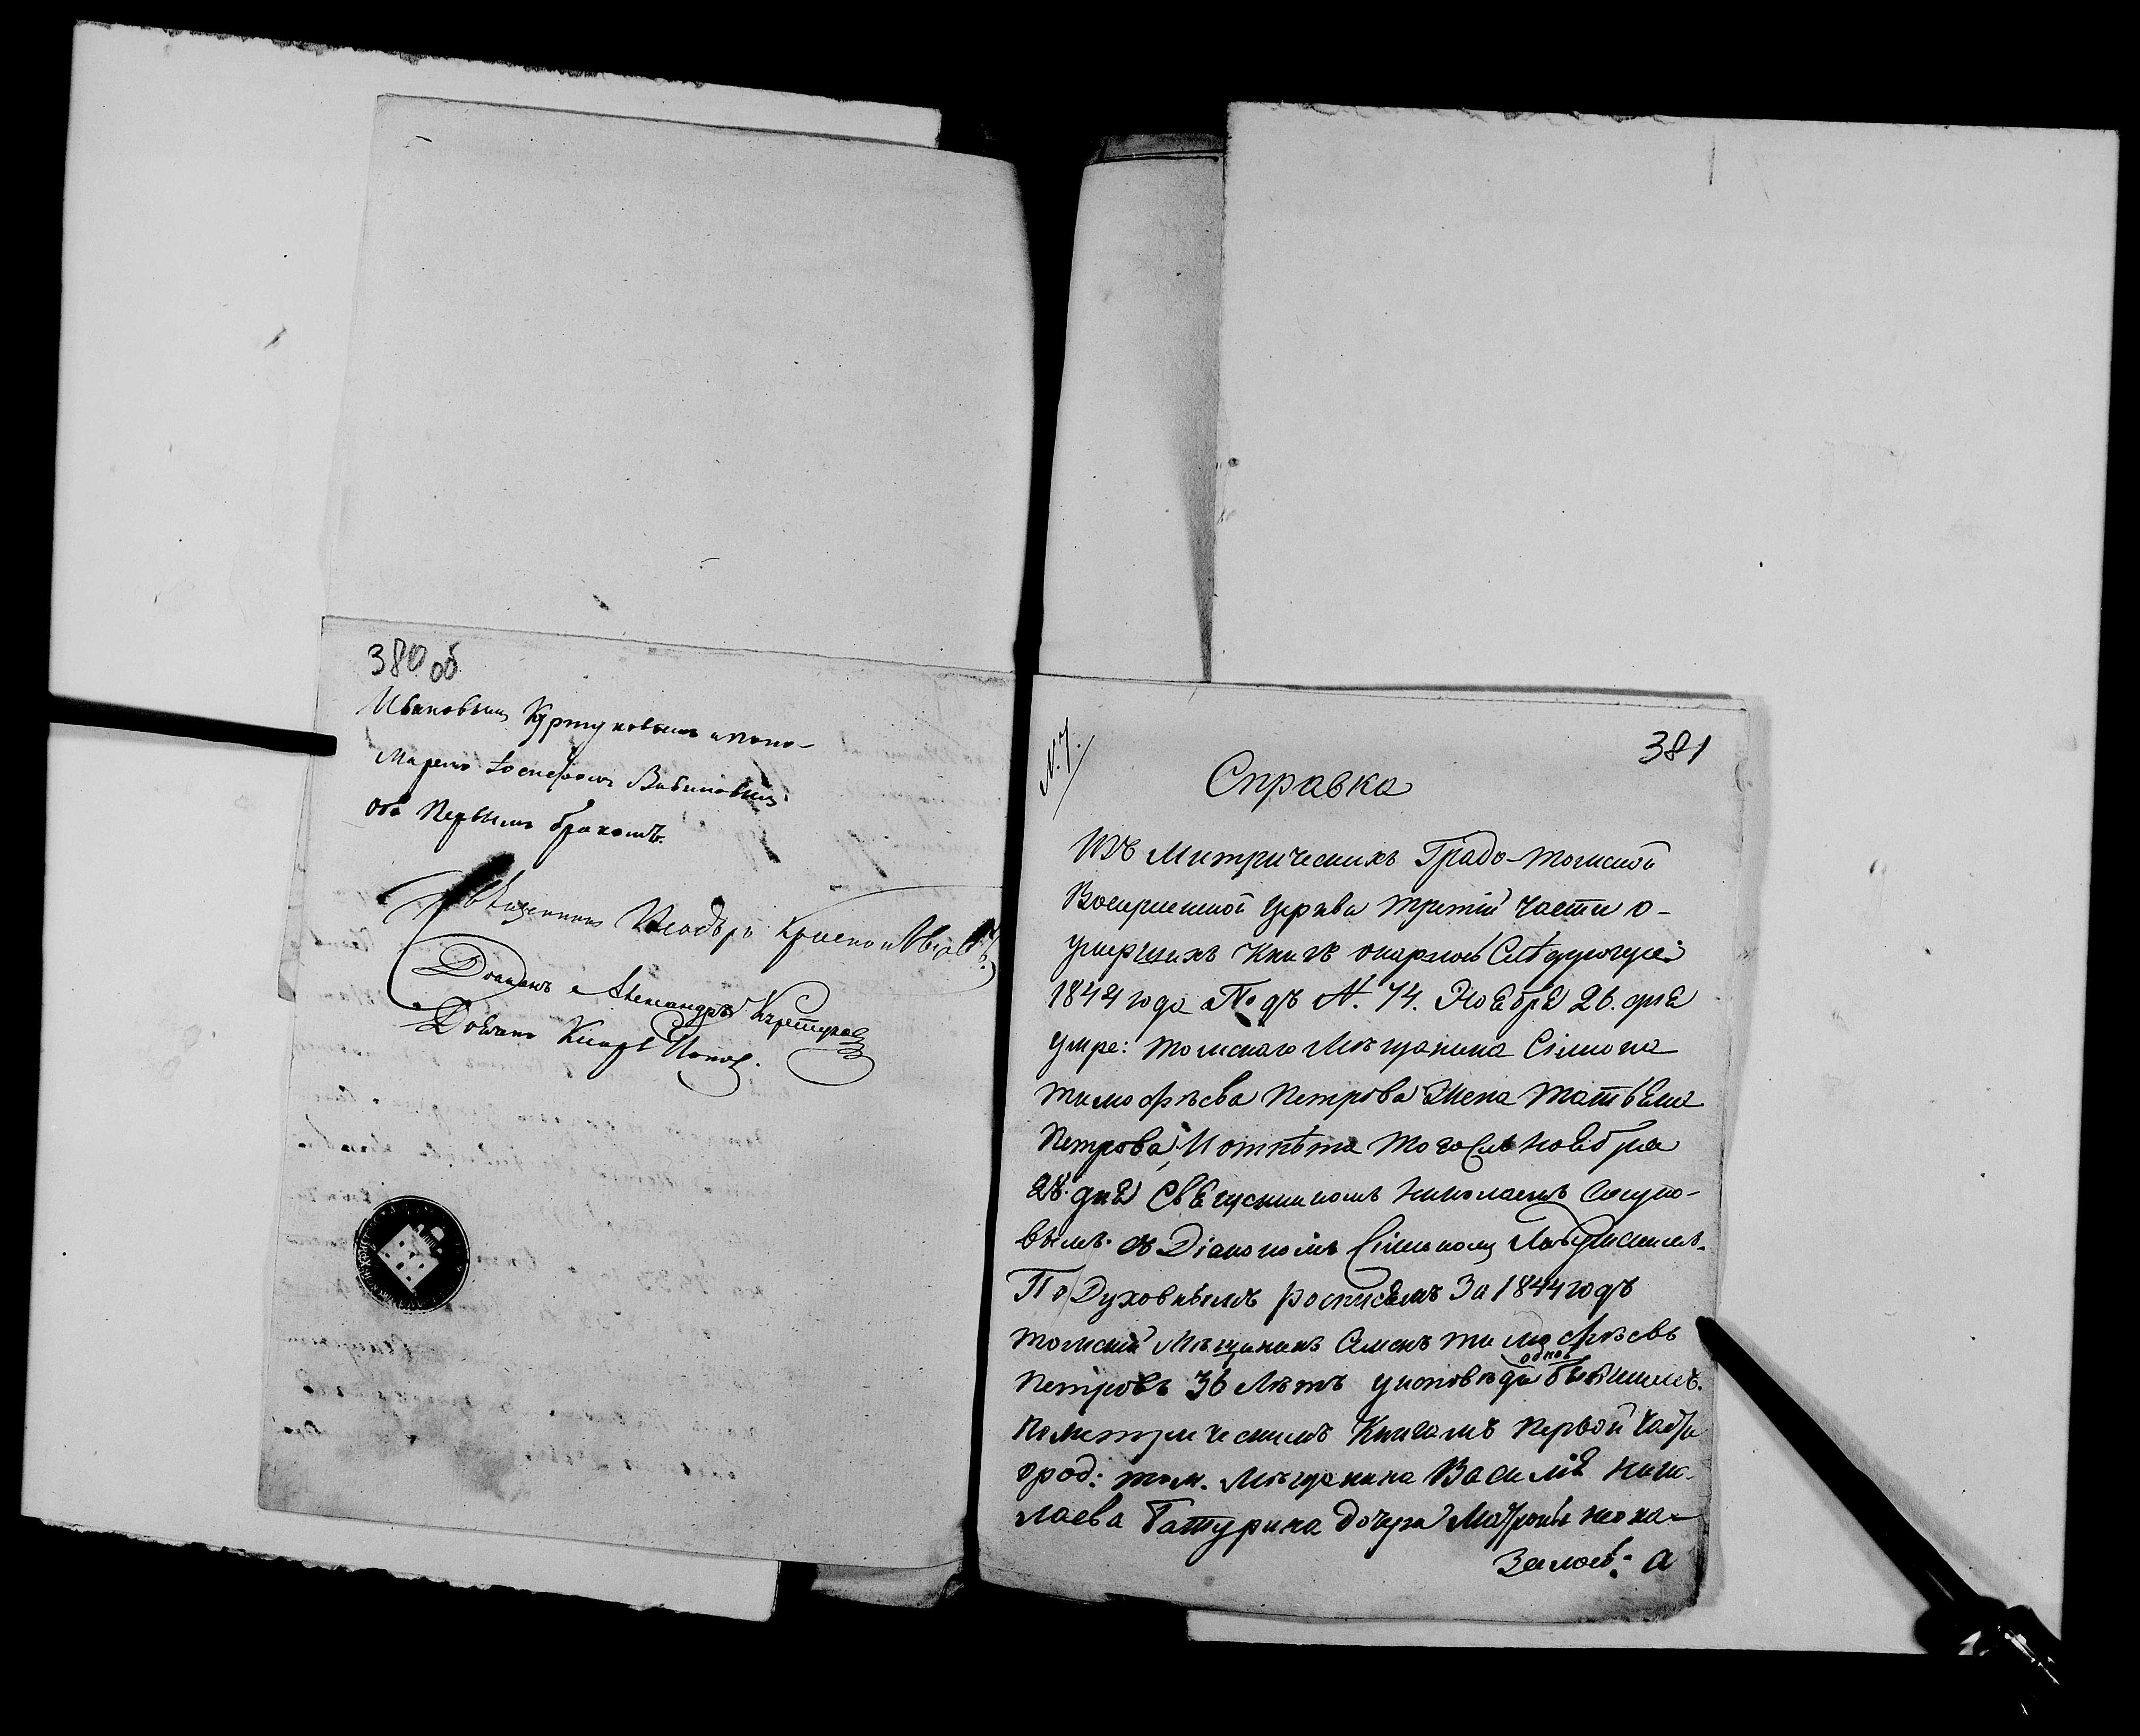 380 об
Ивановымъ Куртуковымъ и поно-
маремъ Іосифомъ Вавиловымъ
оба первымъ бракомъ.
Священникъ
Діаконъ Александръ
Попов.
N. 7.
381
Справка
Изъ Митрическихъ Градо-Томской
Воскресенской Церкви третій части о-
умершихъ Книгъ окарлось Слѣдующее:
1844 года Подъ N. 74. Ноября 26. дня
умре: Томскаго Мѣщанина Сімиона
Тимофѣева Петрова Жена Татьяна
Петрова, И отпѣта того Сль Ноября
28. дня Священникомъ Николаемъ
вымъ. съ Діакономъ Сімиономъ
По Духовнымъ росписямъ За 1844 годъ
Томский Мѣщанинъ Семенъ Тимофѣевъ
Петровъ 36 Лѣтъ уисповѣди бывшимъ.
пометрическимъ Книгамъ первой части
ород: том. Мѣщанина Василія Нико-
лаева Батурина дочери Матроны неока-
залось: а